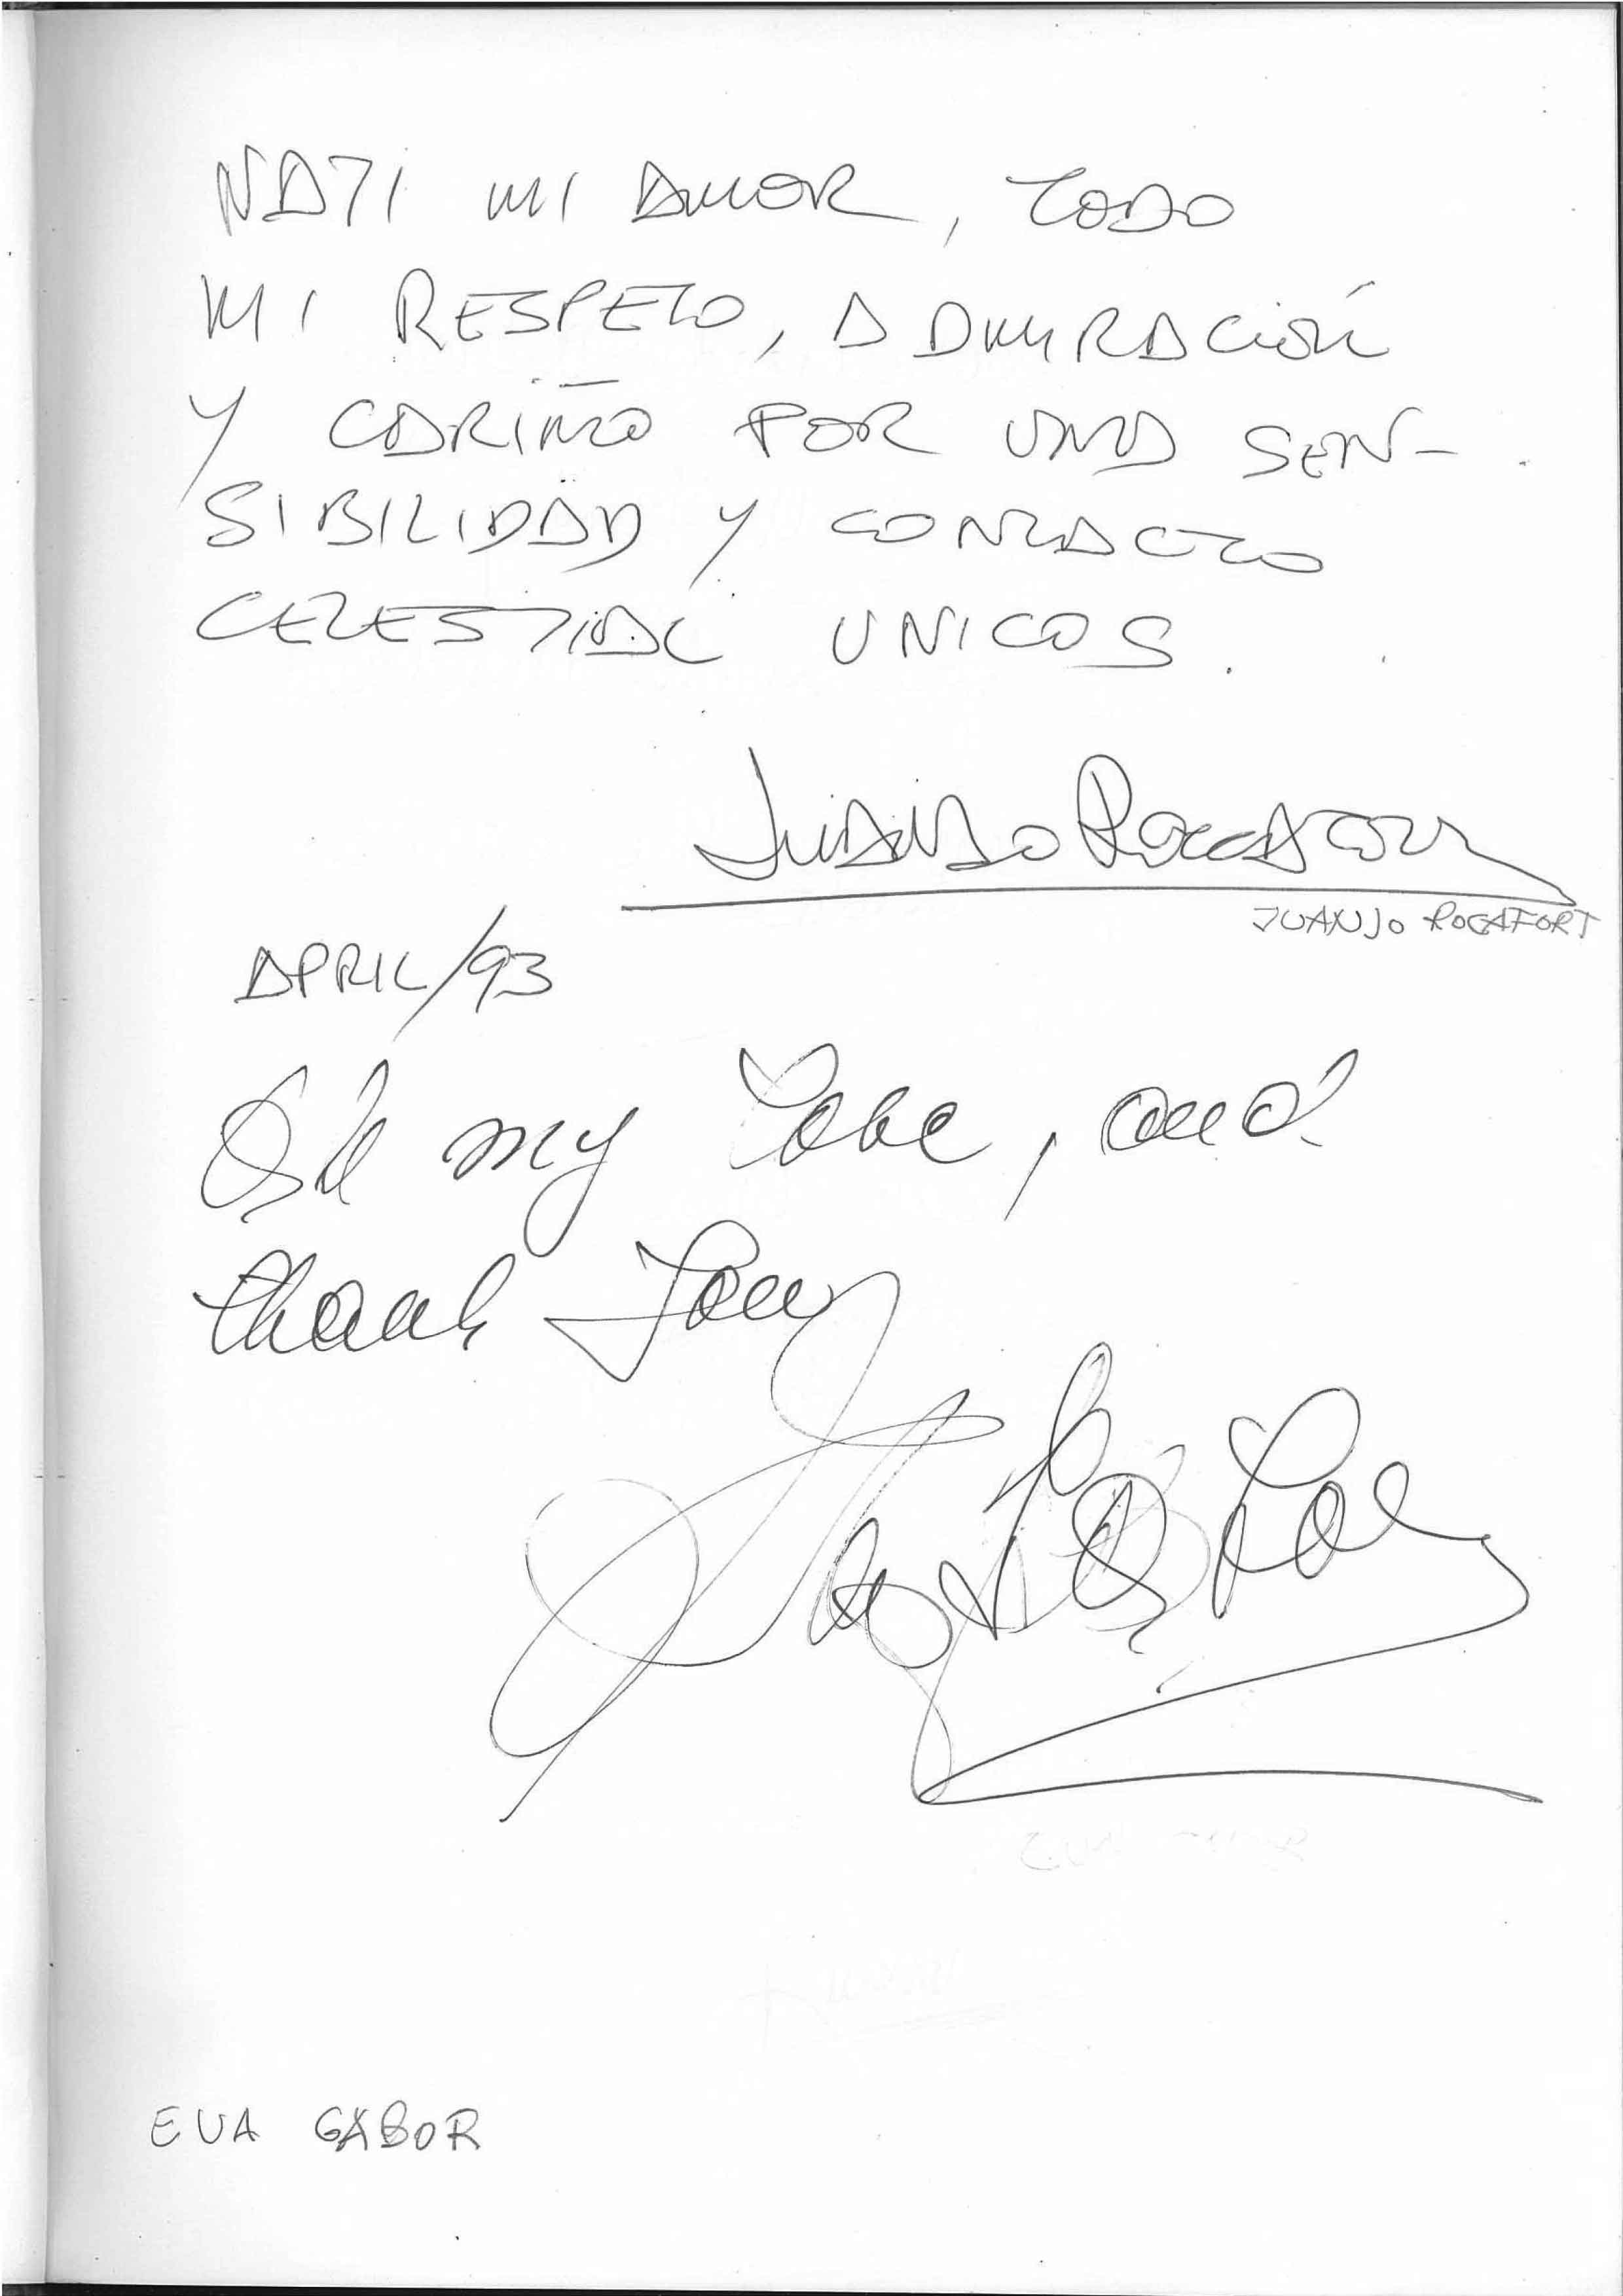 NATI MI AMOR, TODO
MI RESPETO, ADMIRACIÓN
Y CARIÑO POR UNA SEN-
SIBILIDAD Y CONTACTO
CELESTIAL UNICOS.
JUANJO ROCAFORT
JUANJO ROCAFORT
APRIL/93
All my Love, and
thank You
EVA GABOR